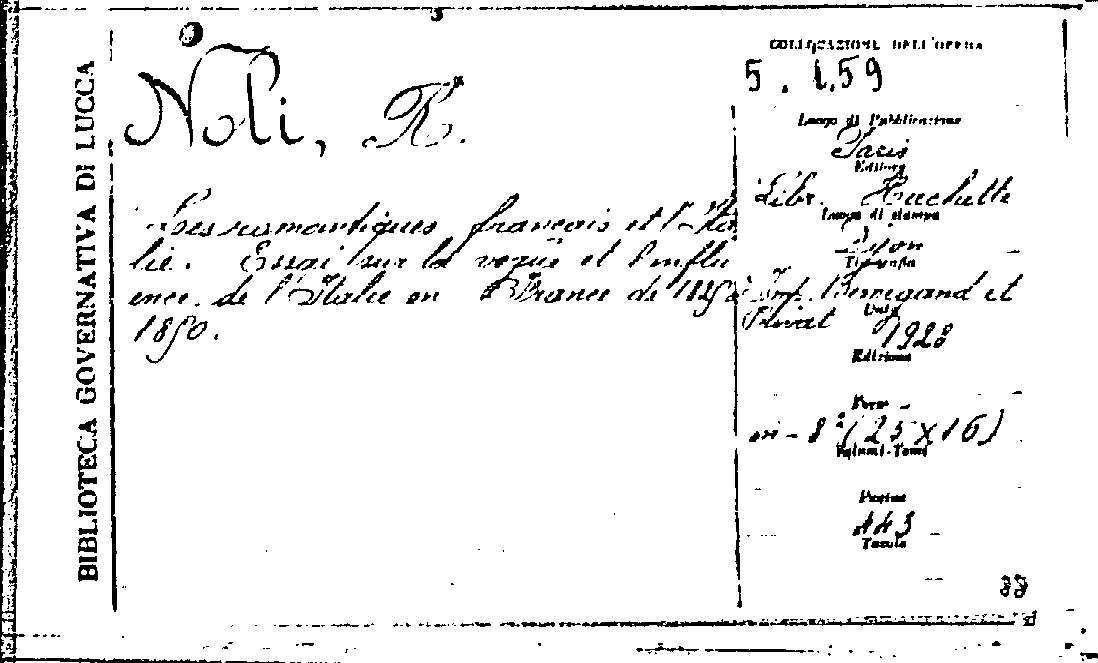 BIBLIOTECA GOVERNATIVA DI LUCCA
Noli, R.
Les romantiques français et l'Ita
lie. Essai sur la vogue et l'influ
ence de l'Italie en France de 1825 à
1850.
COLLOCAZIONE DELL'OPERA
5. 1.59
Luogo di Pubblicazione
Paris
Editore
Libr. Hachette
Luogo di stampa
Dijon
Tipografia
Imp. Berrigand et
Privat
Data
1928
Edizione
Form.
in-8° (25 x 16)
Volumi-Tomi
Pagine
443
Tavole